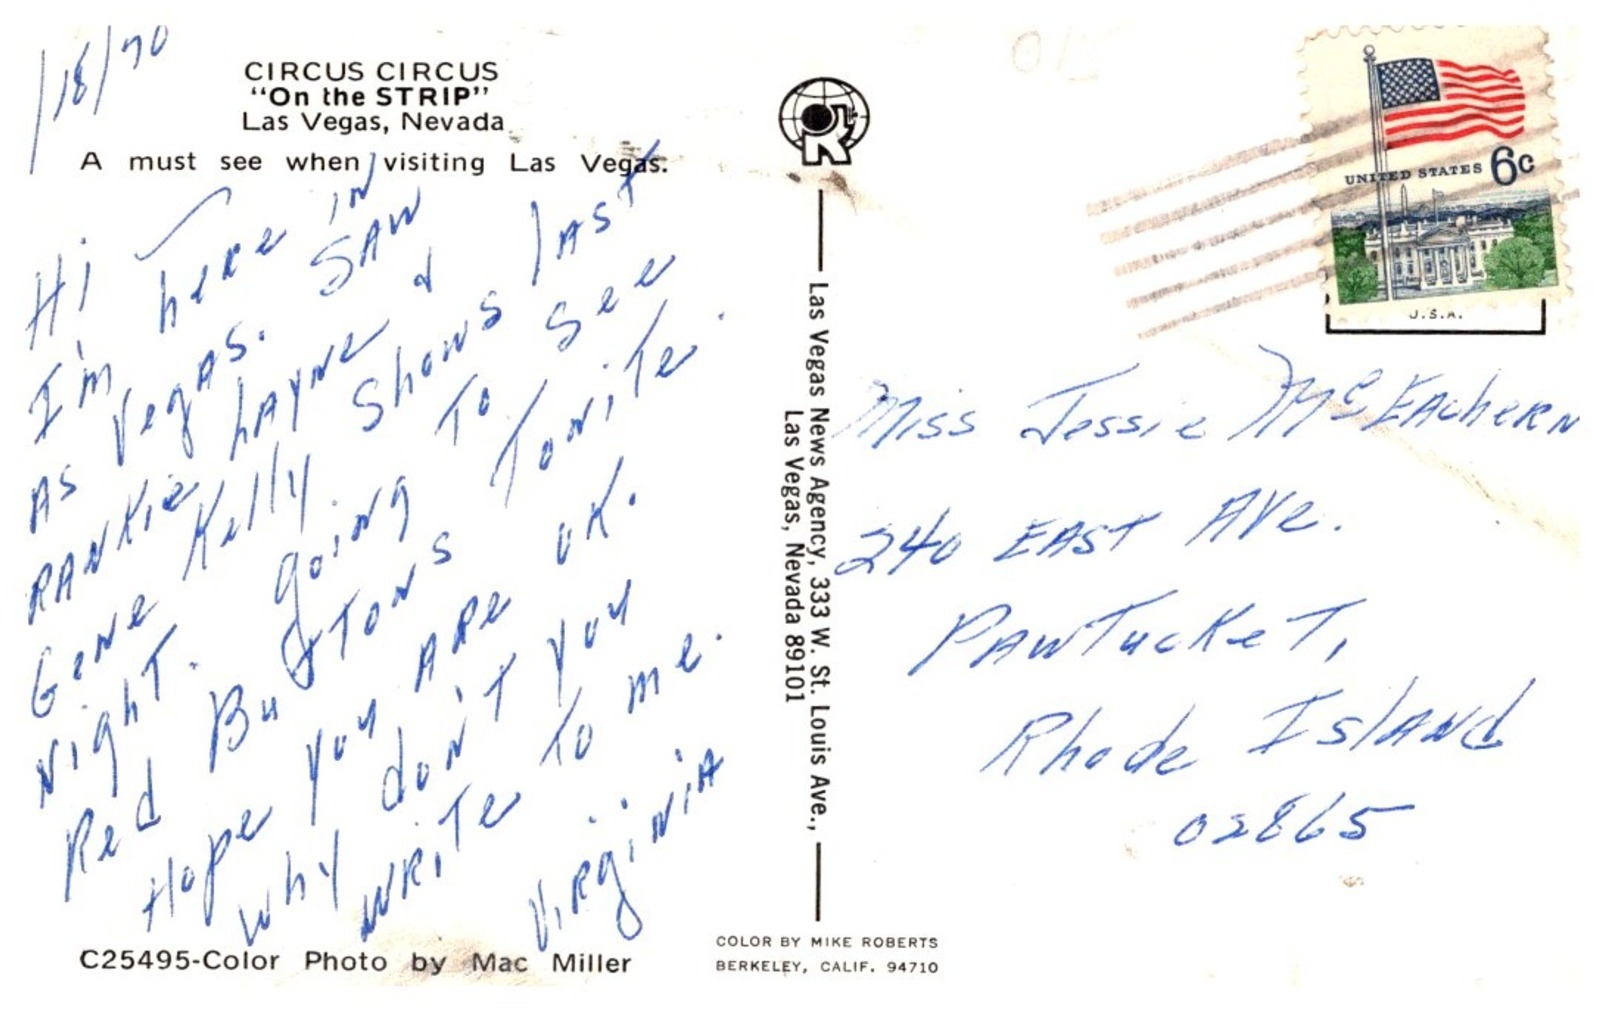 1/18/70
CIRCUS CIRCUS
"On the STRIP"
Las Vegas, Nevada
A must see when visiting Las Vegas.
Hi
I'm here in
As Vegas. SAW
RANKie LAyNe &
Gene Kelly Shows lAST
Night. going To See
Red BuTTons Tonite.
Hope you ARe OK.
Why don't you
WRiTe To me.
ViRginiA
C25495-Color Photo by Mac Miller
Las Vegas News Agency, 333 W. St. Louis Ave.,
Las Vegas, Nevada 89101
COLOR BY MIKE ROBERTS
BERKELEY, CALIF. 94710
K
UNITED STATES 6c
U.S.A.
Miss Jessie McEAcheRN
240 EAST AVe.
PAwTuckeT,
Rhode IslAND
02865